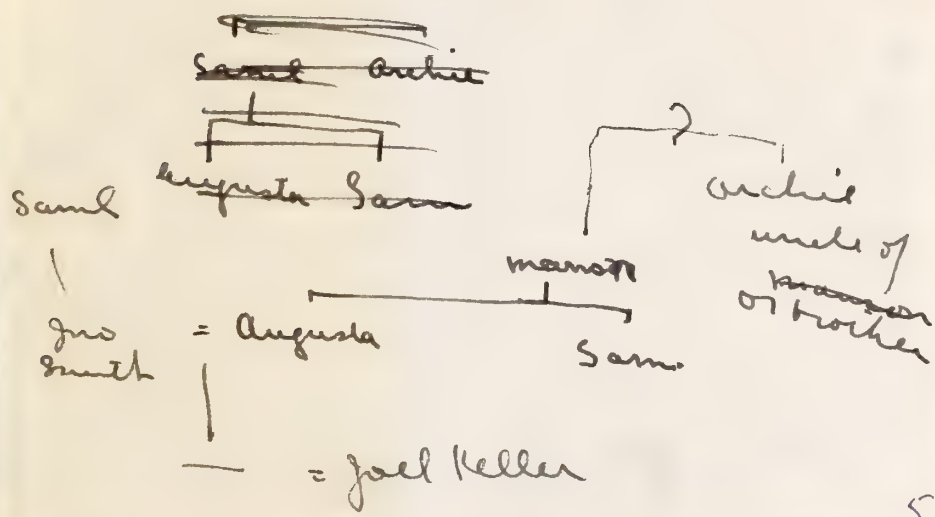 Saml Archie
Augusta Sam
Saml
?
Archie
uncle of
or brother
Mason
Jno = Augusta
Smith
Sam.
— = Joel Keller
5